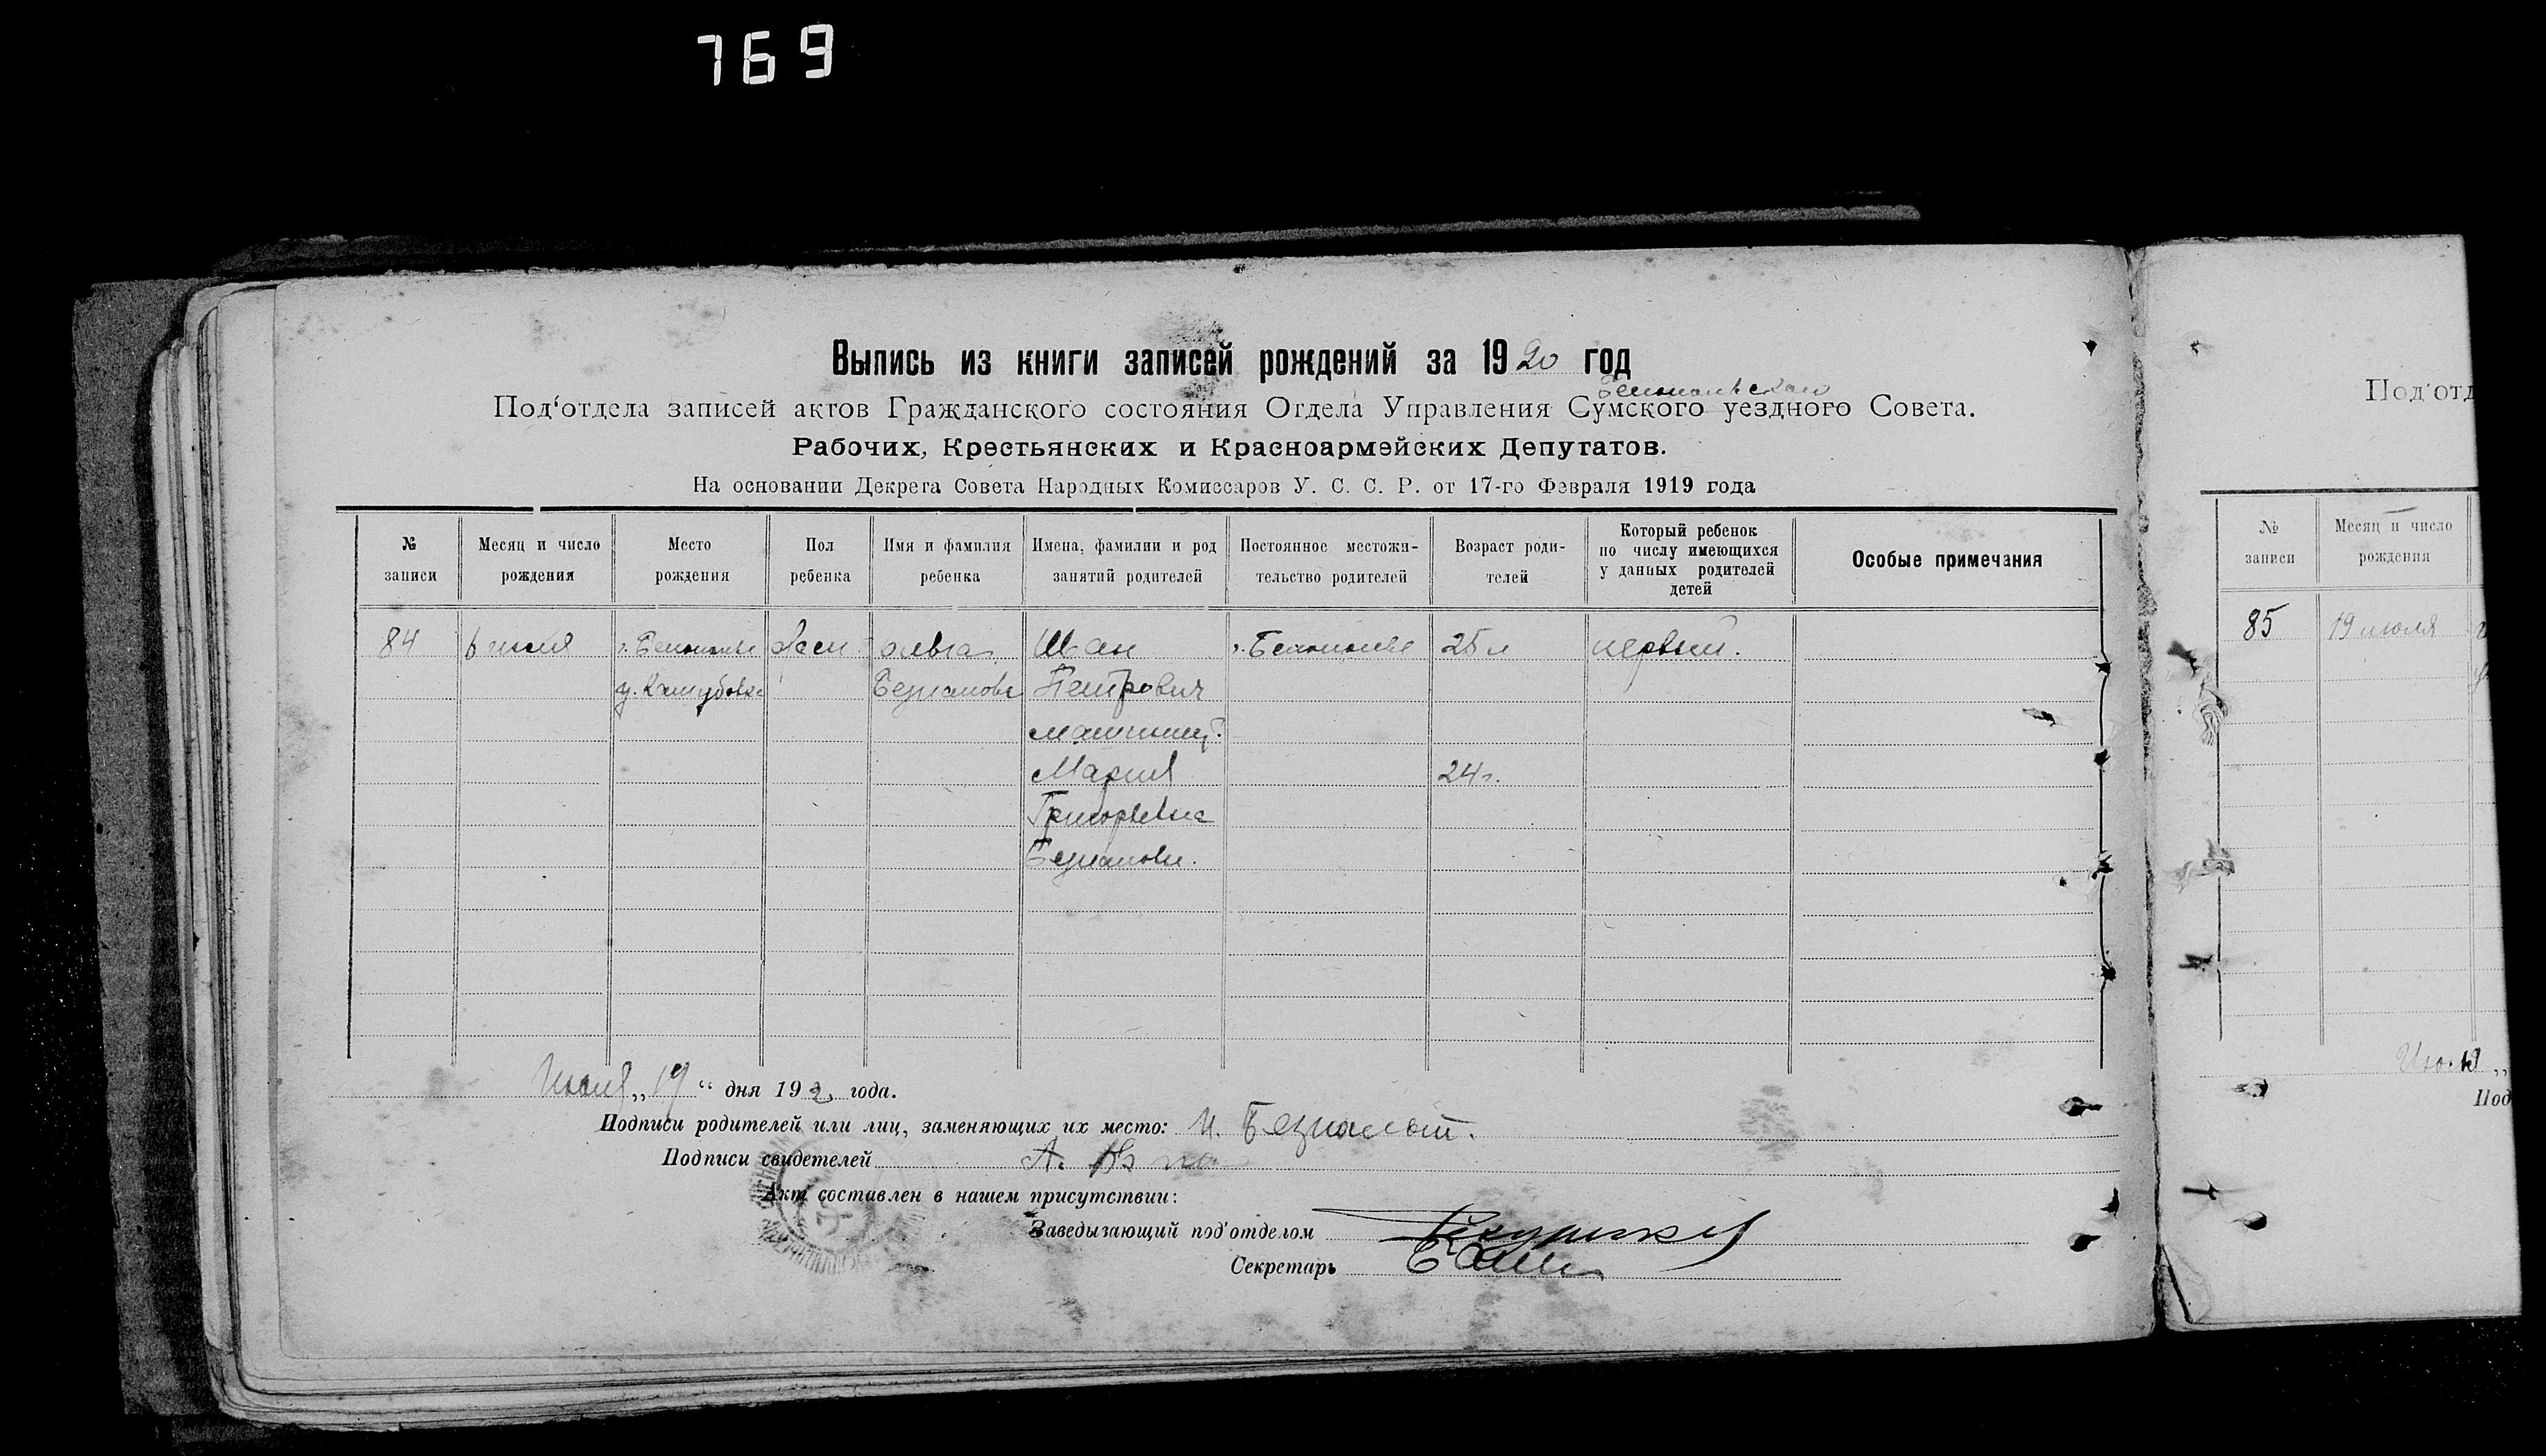 769
Выпись из книги записей рождений за 1920 год
Белопольского
Под'отдела записей актов Гражданского состояния Отдела Управления Сумского уездного Совета.
Рабочих, Крестьянских и Красноармейских Депутатов.
На основании Декрета Совета Народных Комиссаров У. С. С. Р. от 17-го Февраля 1919 года
№ записи
Месяц и число рождения
Место рождения
Пол ребенка
Имя и фамилия ребенка
Имена, фамилии и род занятий родителей
Постоянное местожительство родителей
Возраст родителей
Который ребенок по числу имеющихся у данных родителей детей
Особые примечания
84 6 июля г. Белополье жен ольга Иван г. Белополье 25 л первый.
Петрович
Мария 24 г.
Григорьевна
Июля „19“ дня 192 года.
Подписи родителей или лиц, заменяющих их место: И.
Подписи свидетелей А.
Акт составлен в нашем присутствии:
Заведызающий под'отделом
Секретарь
Под'отд
№ записи
Месяц и число рождения
85 19 июля
Под